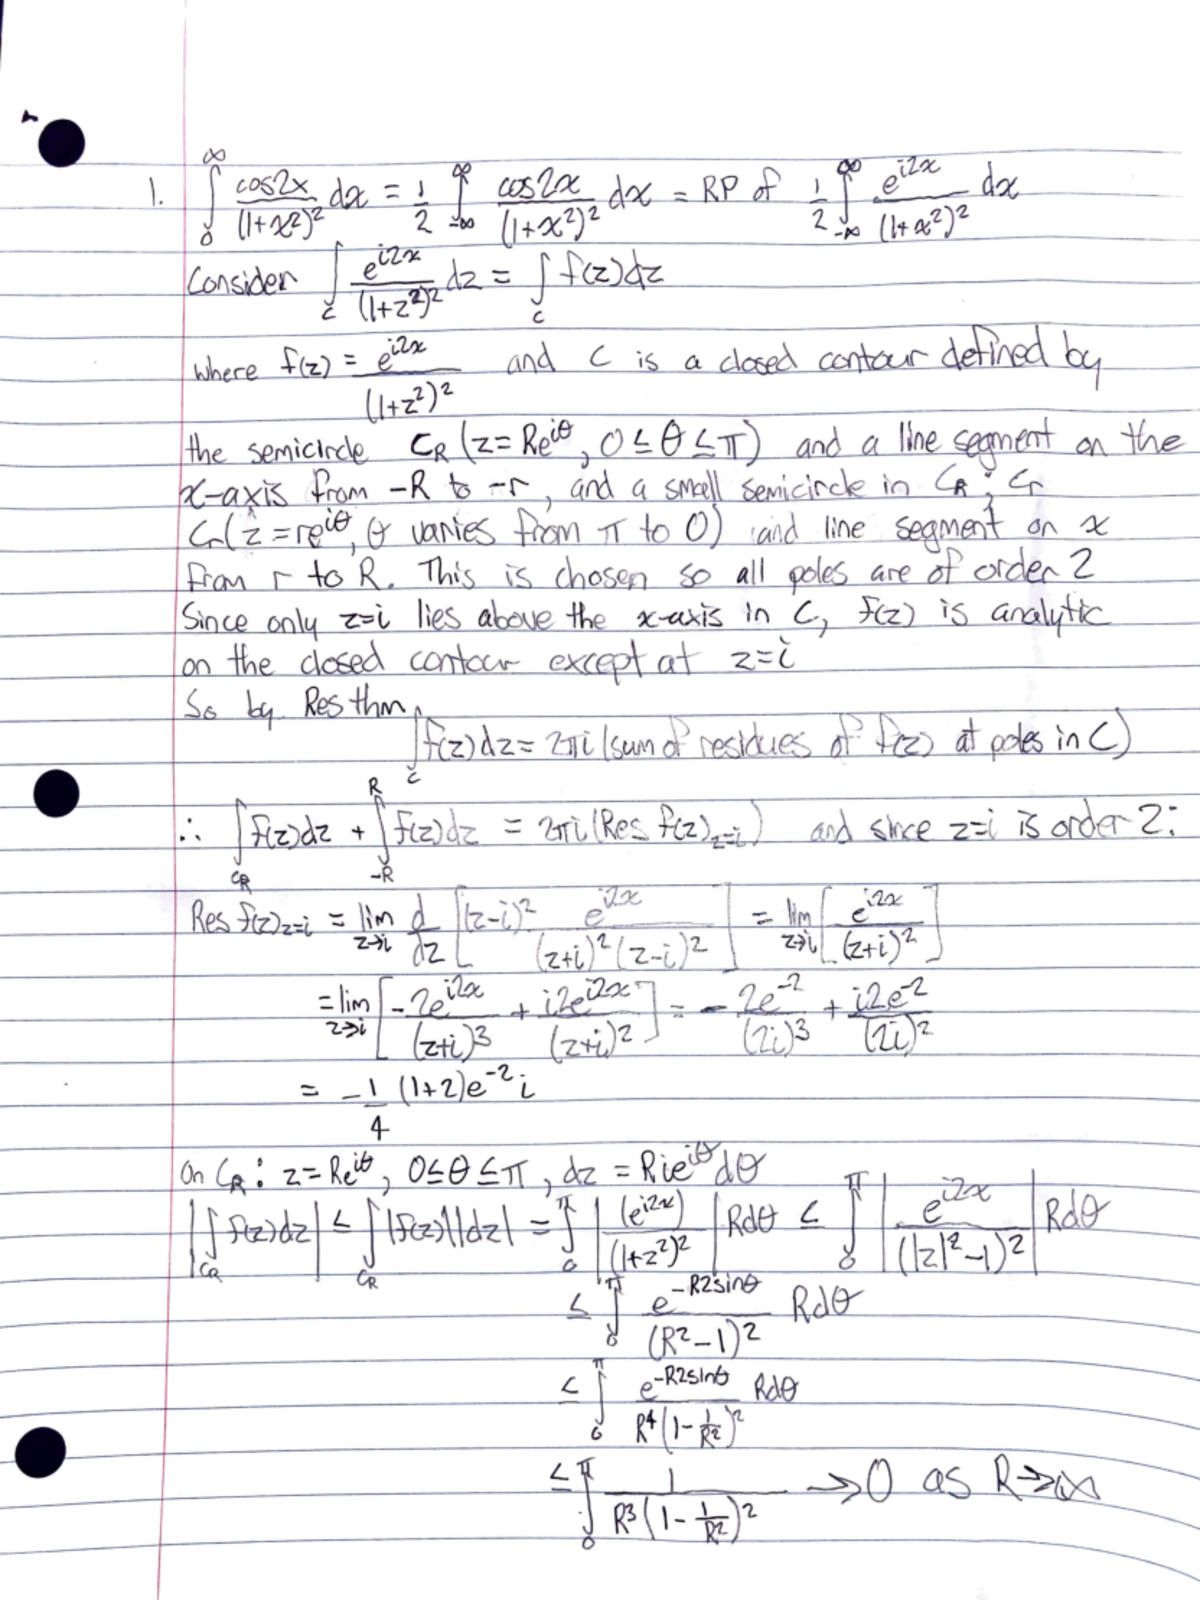 1. ∫_0^∞ cos2x/(1+x²)² dx = 1/2 ∫_-∞^∞ cos2x/(1+x²)² dx = RP of 1/2 ∫_-∞^∞ e^{i2x}/(1+x²)² dx
Consider ∫_c e^{i2x}/(1+z²)² dz = ∫_c f(z)dz
where f(z) = e^{i2x}/(1+z²)² and C is a closed contour defined by
the semicircle C_R (z=Re^{iθ}, 0≤θ≤π) and a line segment on the
x-axis from -R to -r, and a small semicircle in C_R; C_r
C_r(z=re^{iθ}, θ varies from π to 0) and line segment on x
from r to R. This is chosen so all poles are of order 2
Since only z=i lies above the x-axis in C, f(z) is analytic
on the closed contour except at z=i
So by Res thm,
∫_c f(z)dz = 2πi (sum of residues of f(z) at poles in C)
∴ ∫_{C_R} f(z)dz + ∫_{-R}^R f(z)dz = 2πi(Res f(z)_{z=i}) and since z=i is order 2:
Res f(z)_{z=i} = lim_{z→i} d/dz [(z-i)² e^{i2x}/((z+i)²(z-i)²)] = lim_{z→i} [e^{i2x}/(z+i)²]
= lim_{z→i} [-2e^{i2x}/(z+i)³ + i2e^{i2x}/(z+i)²] = -2e^{-2}/(2i)³ + i2e^{-2}/(2i)²
= -1/4 (1+2)e^{-2}i
On C_R: z=Re^{iθ}, 0≤θ≤π, dz = Rie^{iθ}dθ
|∫_{C_R} f(z)dz| ≤ ∫_{C_R} |f(z)||dz| = ∫_0^π |(e^{i2x})/(1+z²)²| Rdθ ≤ ∫_0^π |e^{i2x}/(|z|²-1)²| Rdθ
≤ ∫_0^π e^{-R2sinθ}/(R²-1)² Rdθ
≤ ∫_0^π e^{-R2sinθ}/(R⁴(1-1/R²)²) Rdθ
≤ ∫_0^π 1/(R³(1-1/R²)²) → 0 as R→∞